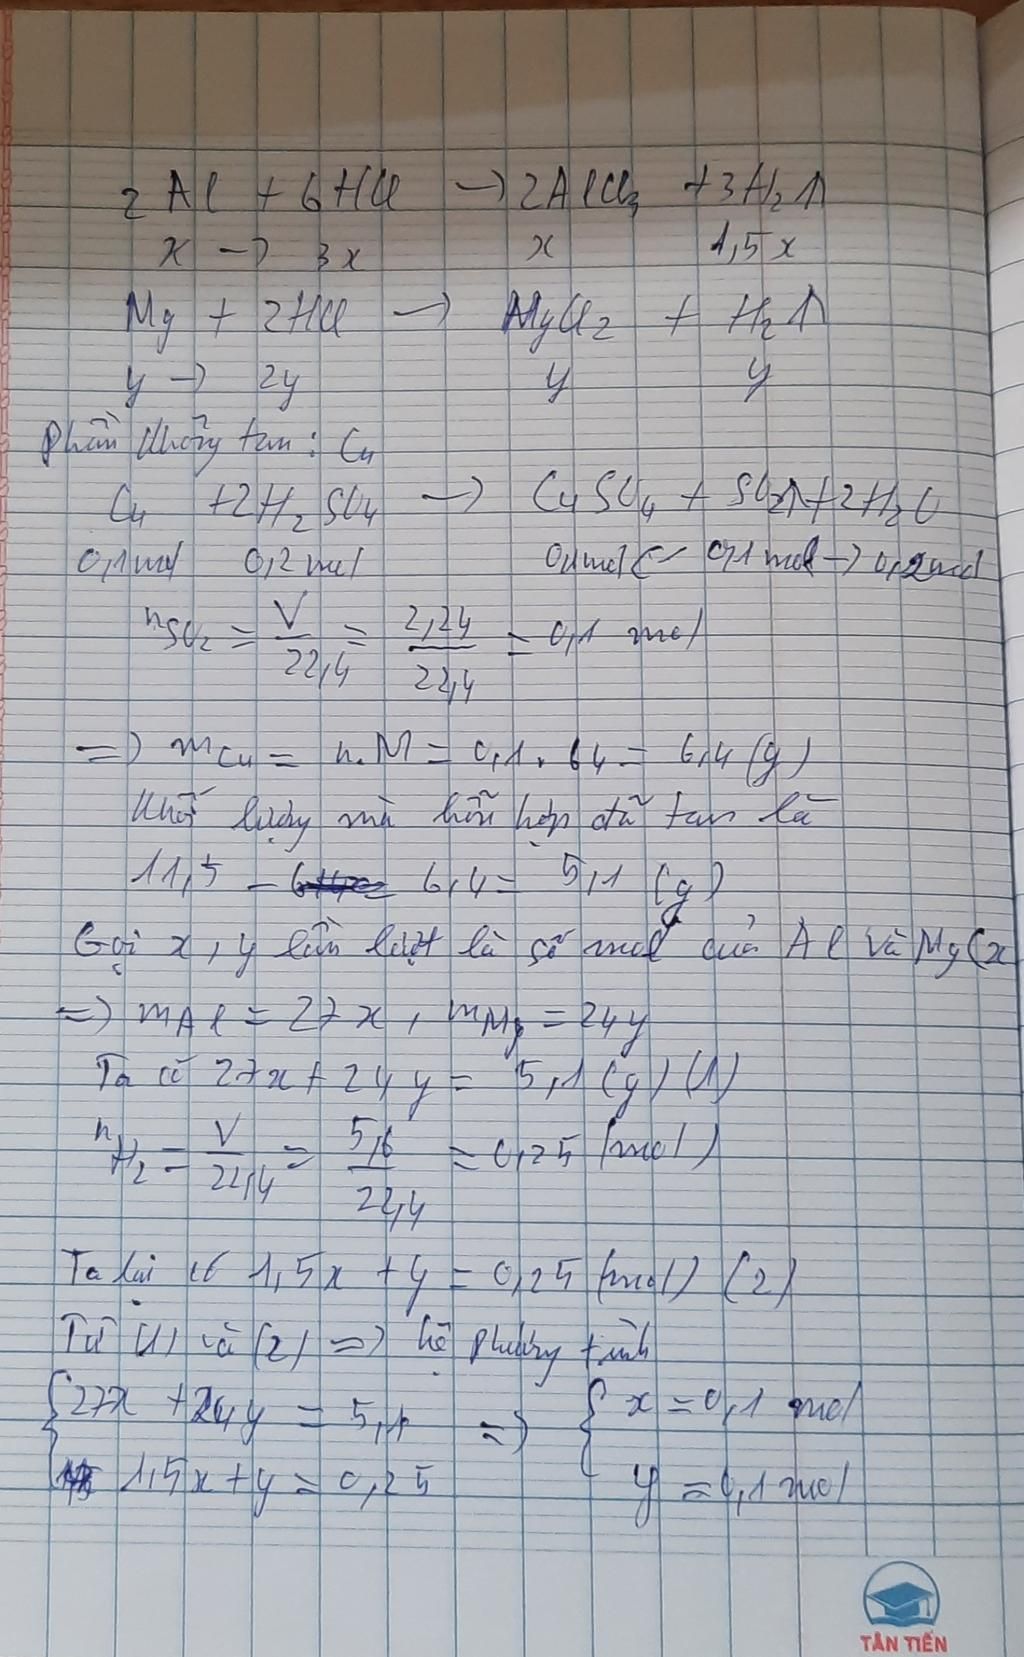 2Al + 6HCl → 2AlCl₃ + 3H₂↑
x → 3x x 1,5x
Mg + 2HCl → MgCl₂ + H₂↑
y → 2y y y
Phần không tan : Cu
Cu + 2H₂SO₄ → CuSO₄ + SO₂↑ + 2H₂O
0,1mol 0,2mol 0,1mol ← 0,1mol → 0,2mol
nSO₂ = V/22,4 = 2,24/22,4 = 0,1 mol
=> mCu = n.M = 0,1 . 64 = 6,4 (g)
Khối lượng mà hỗn hợp đã tan là
11,5 - 6,4 = 5,1 (g)
Gọi x, y lần lượt là số mol của Al và Mg (x
=> mAl = 27x, mMg = 24y
Ta có 27x + 24y = 5,1 (g) (1)
nH₂ = V/22,4 = 5,6/22,4 = 0,25 (mol)
Ta lại có 1,5x + y = 0,25 (mol) (2)
Từ (1) và (2) => hệ phương trình
{27x + 24y = 5,1 => { x = 0,1 mol
1,5x + y = 0,25 y = 0,1 mol
TÂN TIẾN